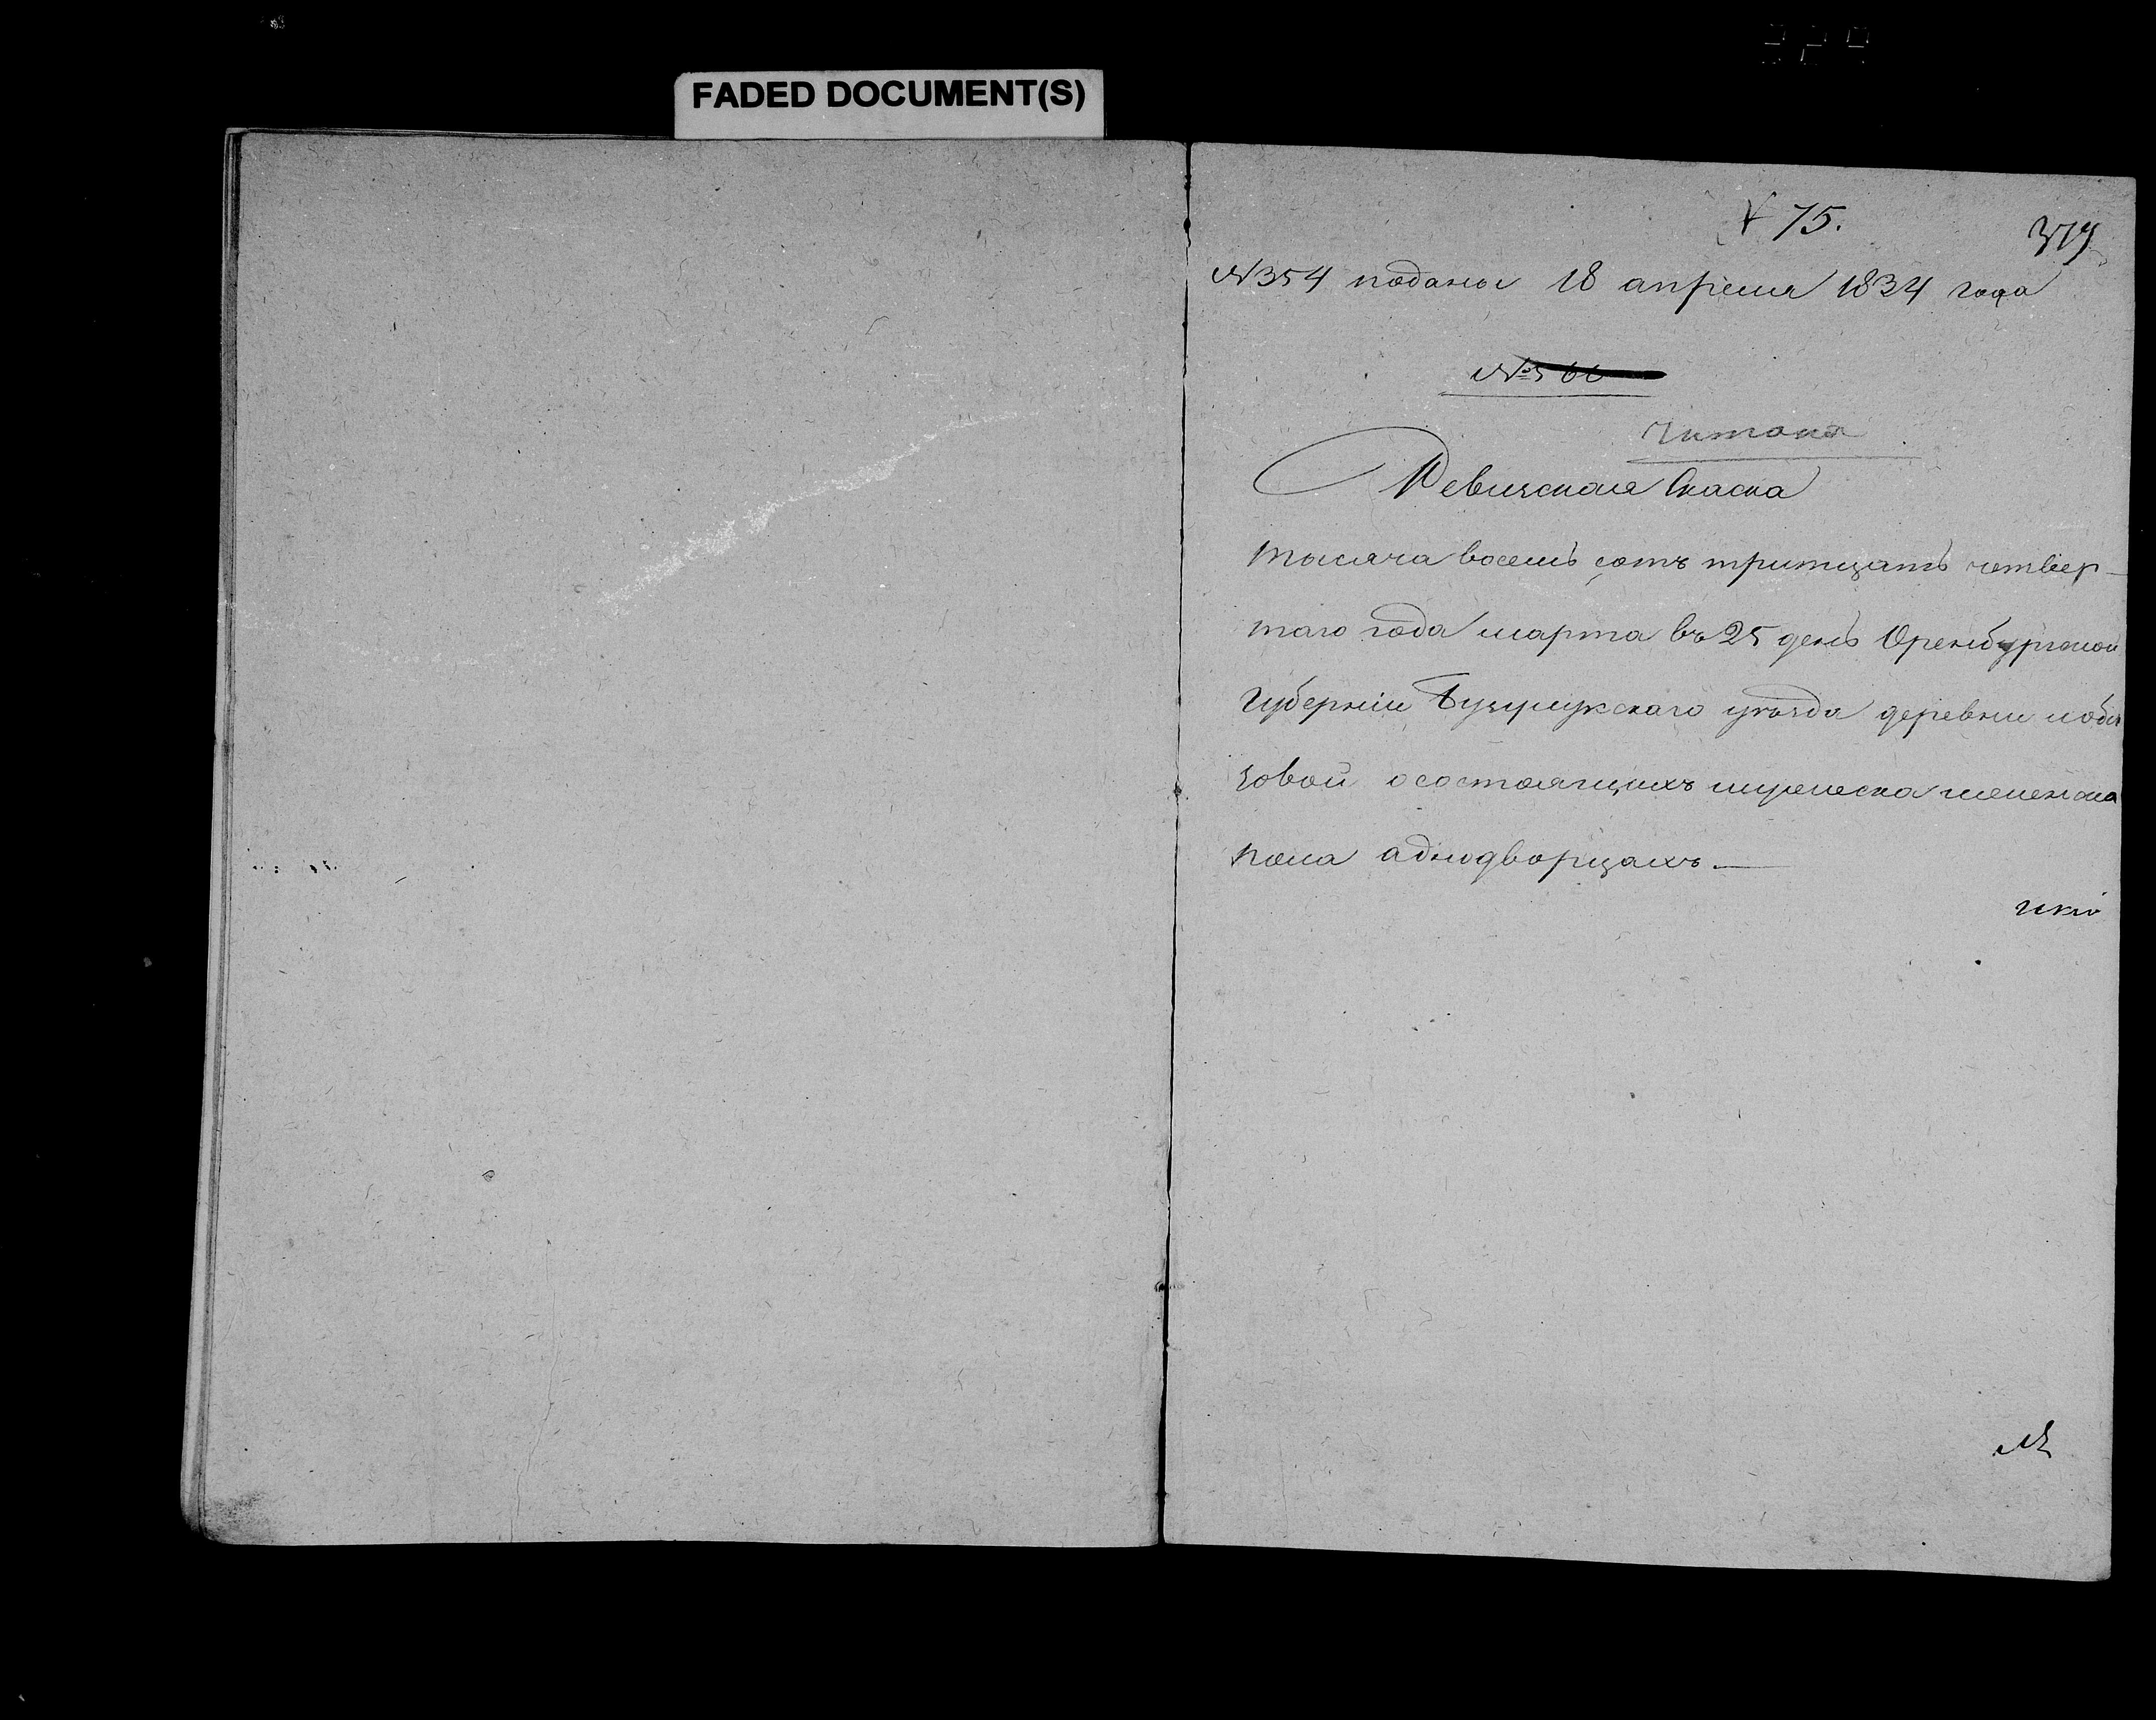 FADED DOCUMENT(S)
75.
N 354 подана 18 апреля 1834 года
читана
Ревизская Скаска
тысяча восемь сотъ тритцать четвер-
таго года марта въ 25 день Оренбургской
губернiи Бузулукскаго уезда деревни
зовой о состоящихъ мужеска женска
пола аднодворцахъ. —